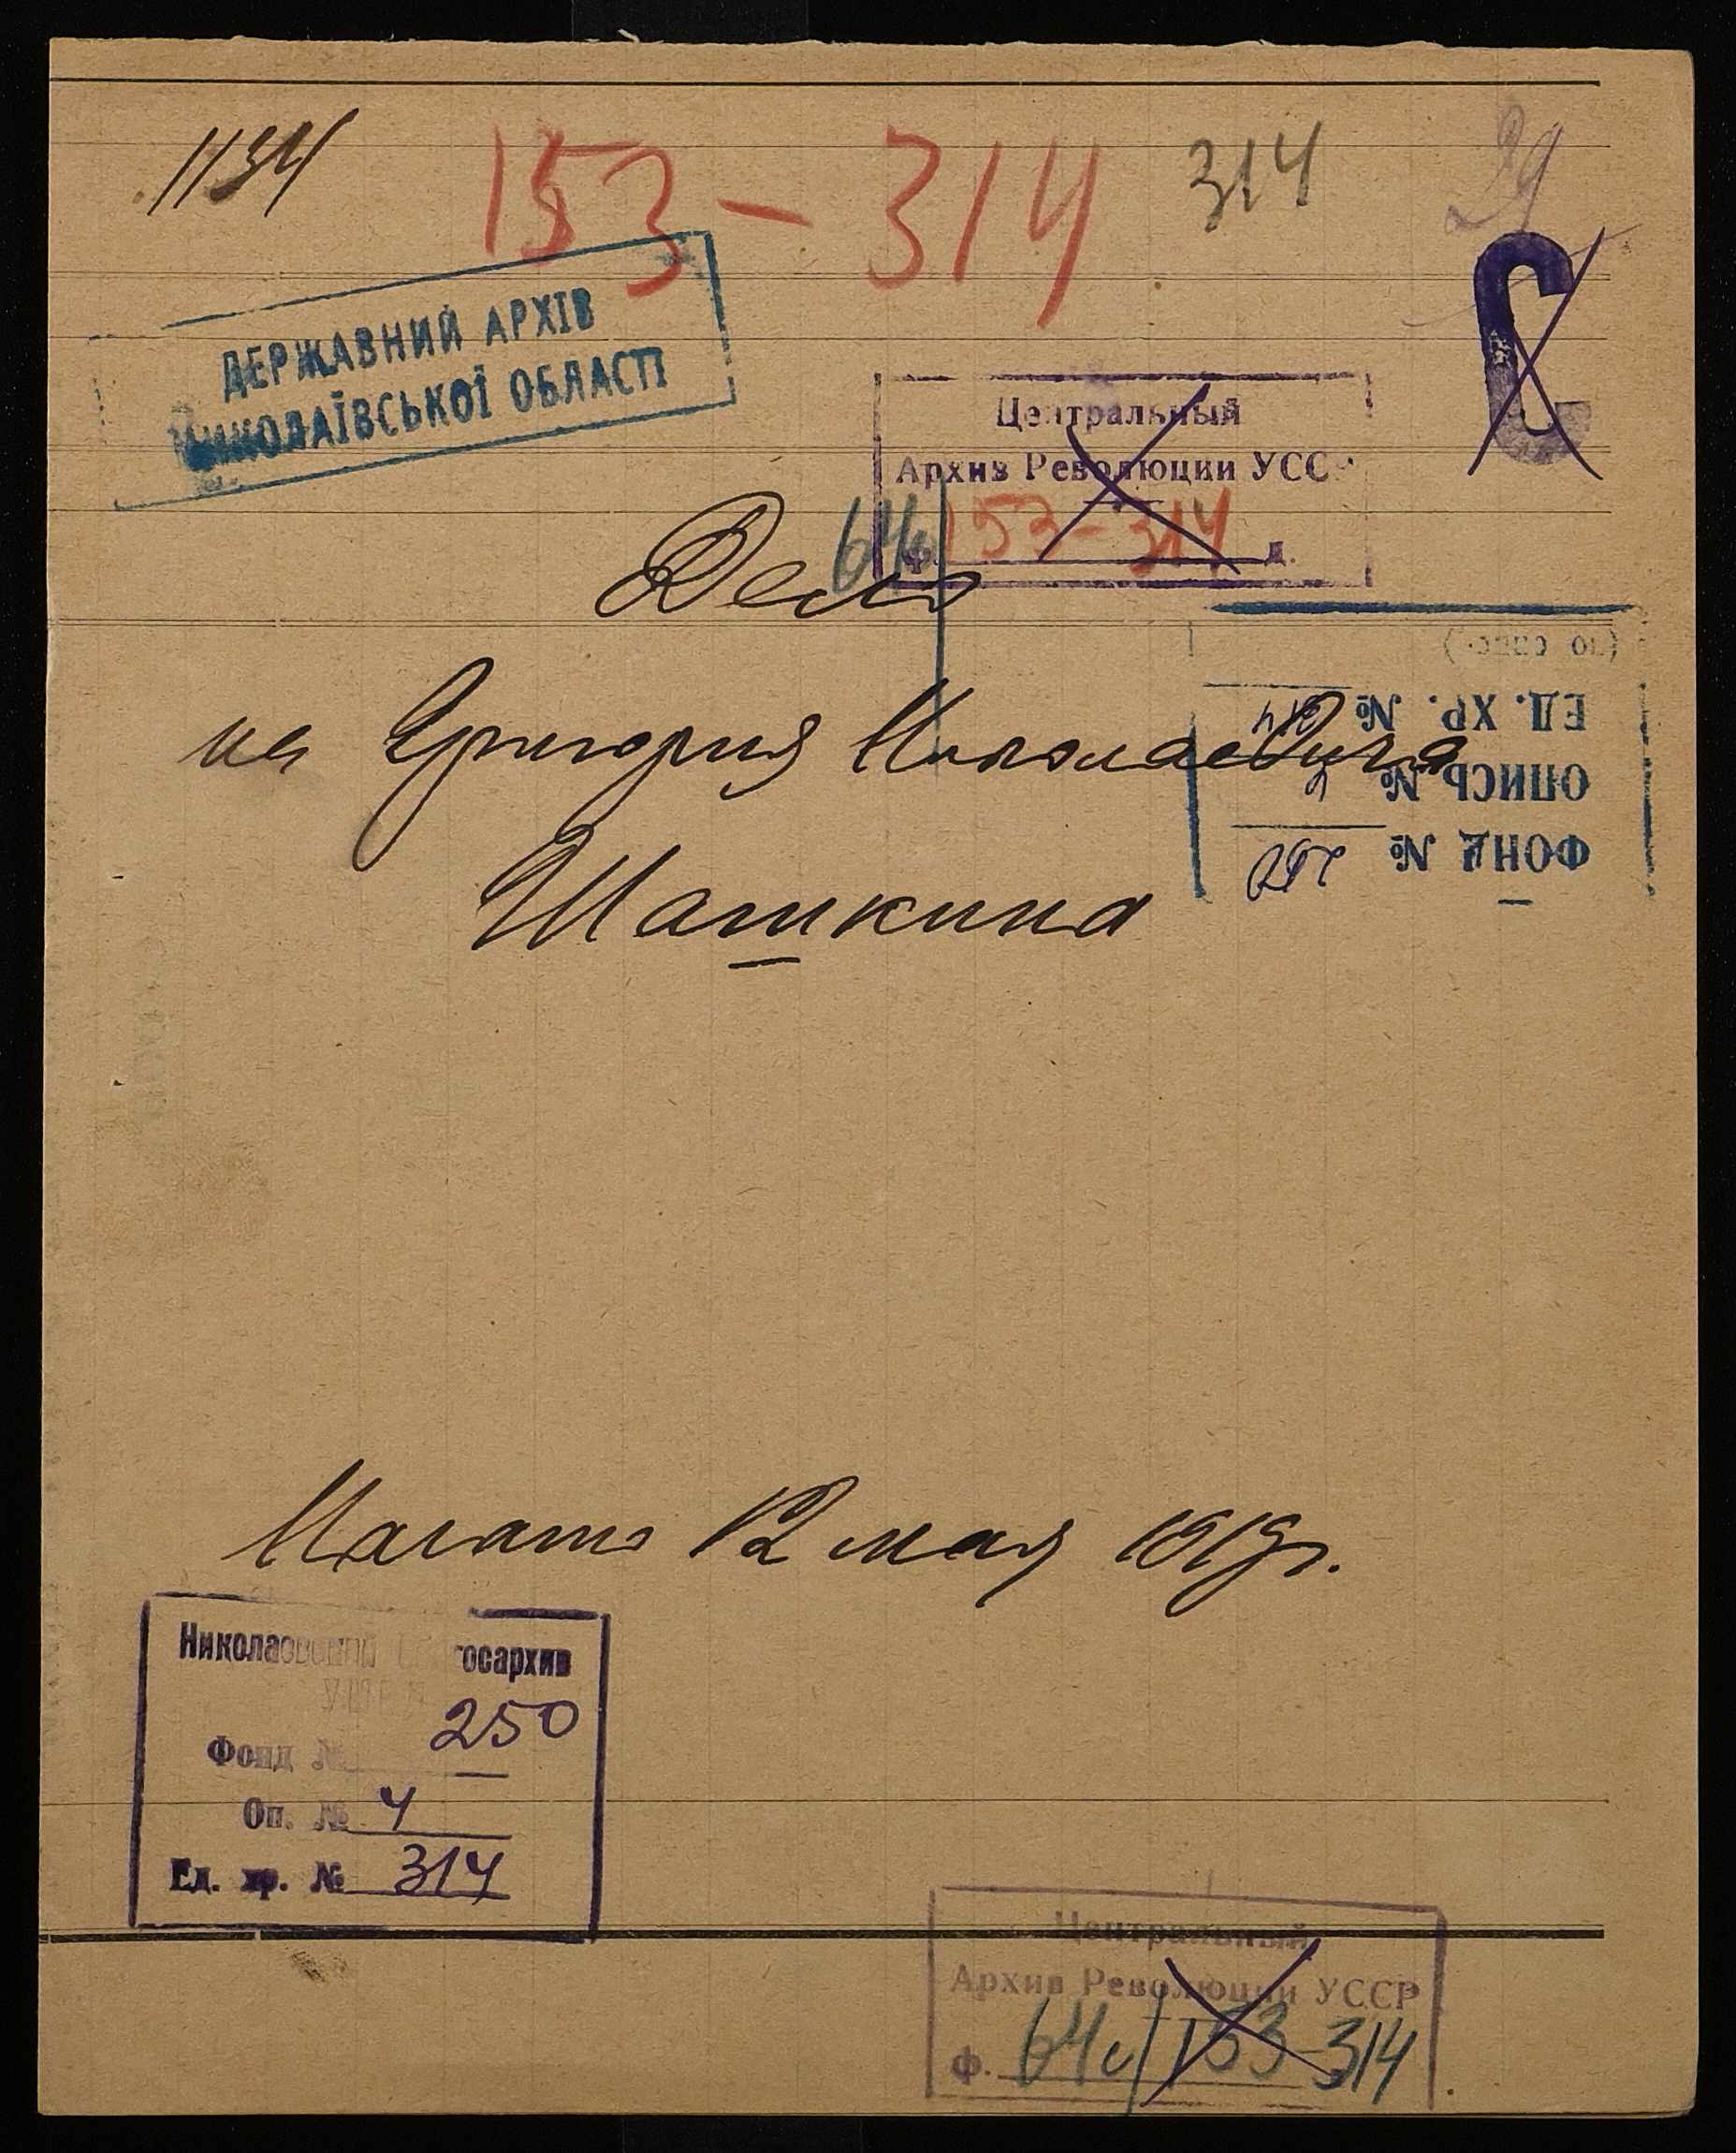 1134
153-314
314
29
С
ДЕРЖАВНИЙ АРХІВ
МИКОЛАЇВСЬКОЇ ОБЛАСТІ
Центральный
Архив Революции УСС
64с 153-314
ф. д.
Дело
на Григория Николаевича
Шашкина
ФОНД № 250
ОПИСЬ №
ЕД. ХР. № 314
Начато 12 мая 1919 г.
Николаевский осархив
250
Фонд №
Оп. № 4
Ед. хр. № 314
Центральный
Архив Революции УССР
ф. 64с/153-314